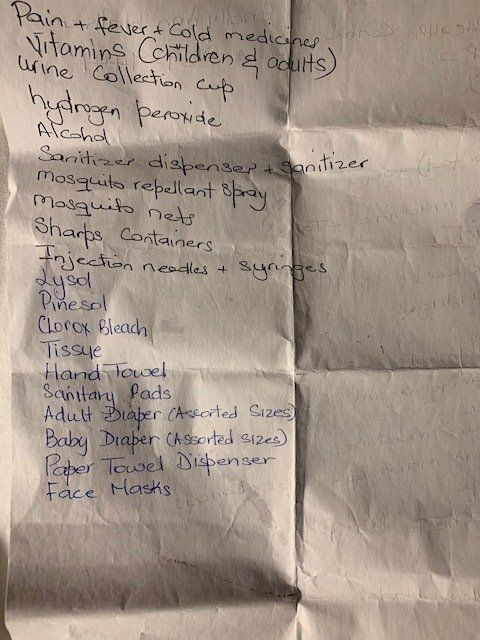 Pain + fever + Cold medicines
Vitamins (children & adults)
Urine Collection Cup
hydrogen peroxide
Alcohol
Sanitizer dispenser + sanitizer
Mosquito repellant Spray
Mosquito nets
Sharps Containers
Injection needles + syringes
Lysol
Pinesol
Clorox Bleach
Tissue
Hand Towel
Sanitary Pads
Adult Diaper (Assorted Sizes)
Baby Diaper (Assorted sizes)
Paper Towel Dispenser
Face Masks